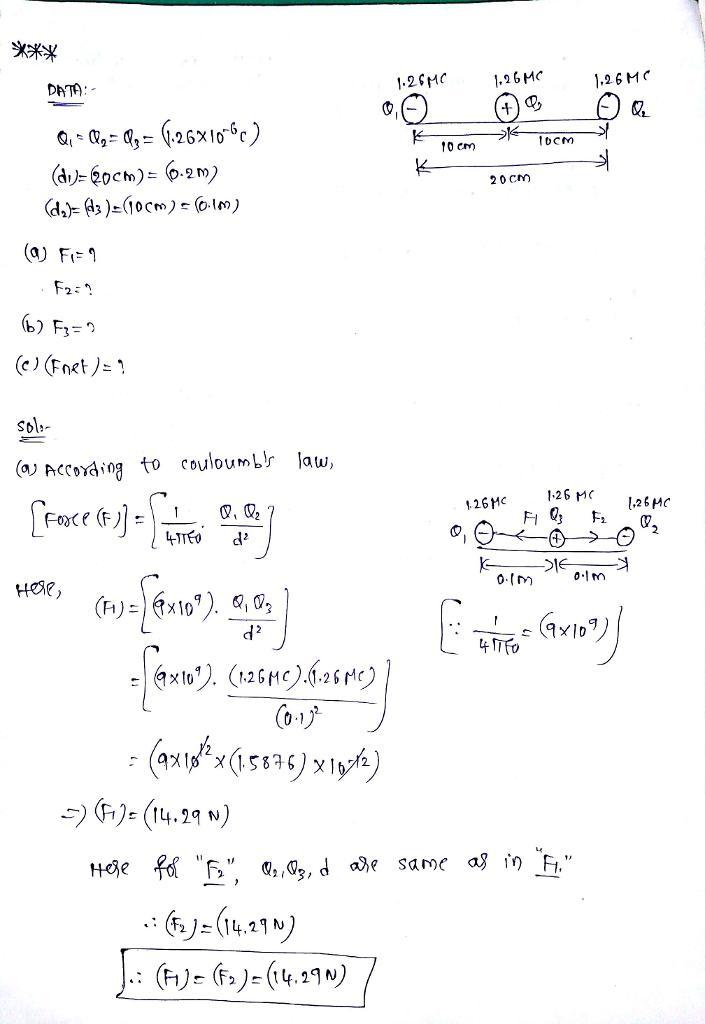 ***
DATA:-
Q₁ = Q₂ = Q₃ = (1.26×10⁻⁶C)
(d₁) = (20cm) = (0.2m)
(d₂) = (d₃) = (10cm) = (0.1m)
1.26MC 1.26MC 1.26MC
Q₁ (-) (+) Q₃ (-) Q₂
10cm 10cm
20cm
(a) F₁ = ?
F₂ = ?
(b) F₃ = ?
(c) (Fnet) = ?
Sol:-
(a) According to couloumb's law,
[Force (F)] = [1/4πε₀ . Q₁ Q₂/d²]
1.26MC 1.26MC 1.26MC
Q₁ (-) F₁ Q₃ (+) F₂ (-) Q₂
0.1m 0.1m
Here, (F₁) = [(9×10⁹). Q₁ Q₃/d²]
[∵ 1/4πε₀ = (9×10⁹)]
= [(9×10⁹). (1.26MC).(1.26MC)/(0.1)²]
= (9×10¹² × (1.5876) × 10⁻¹²)
⇒ (F₁) = (14.29 N)
Here for "F₂", Q₂, Q₃, d are same as in "F₁."
∴ (F₂) = (14.29N)
∴ (F₁) = (F₂) = (14.29N)